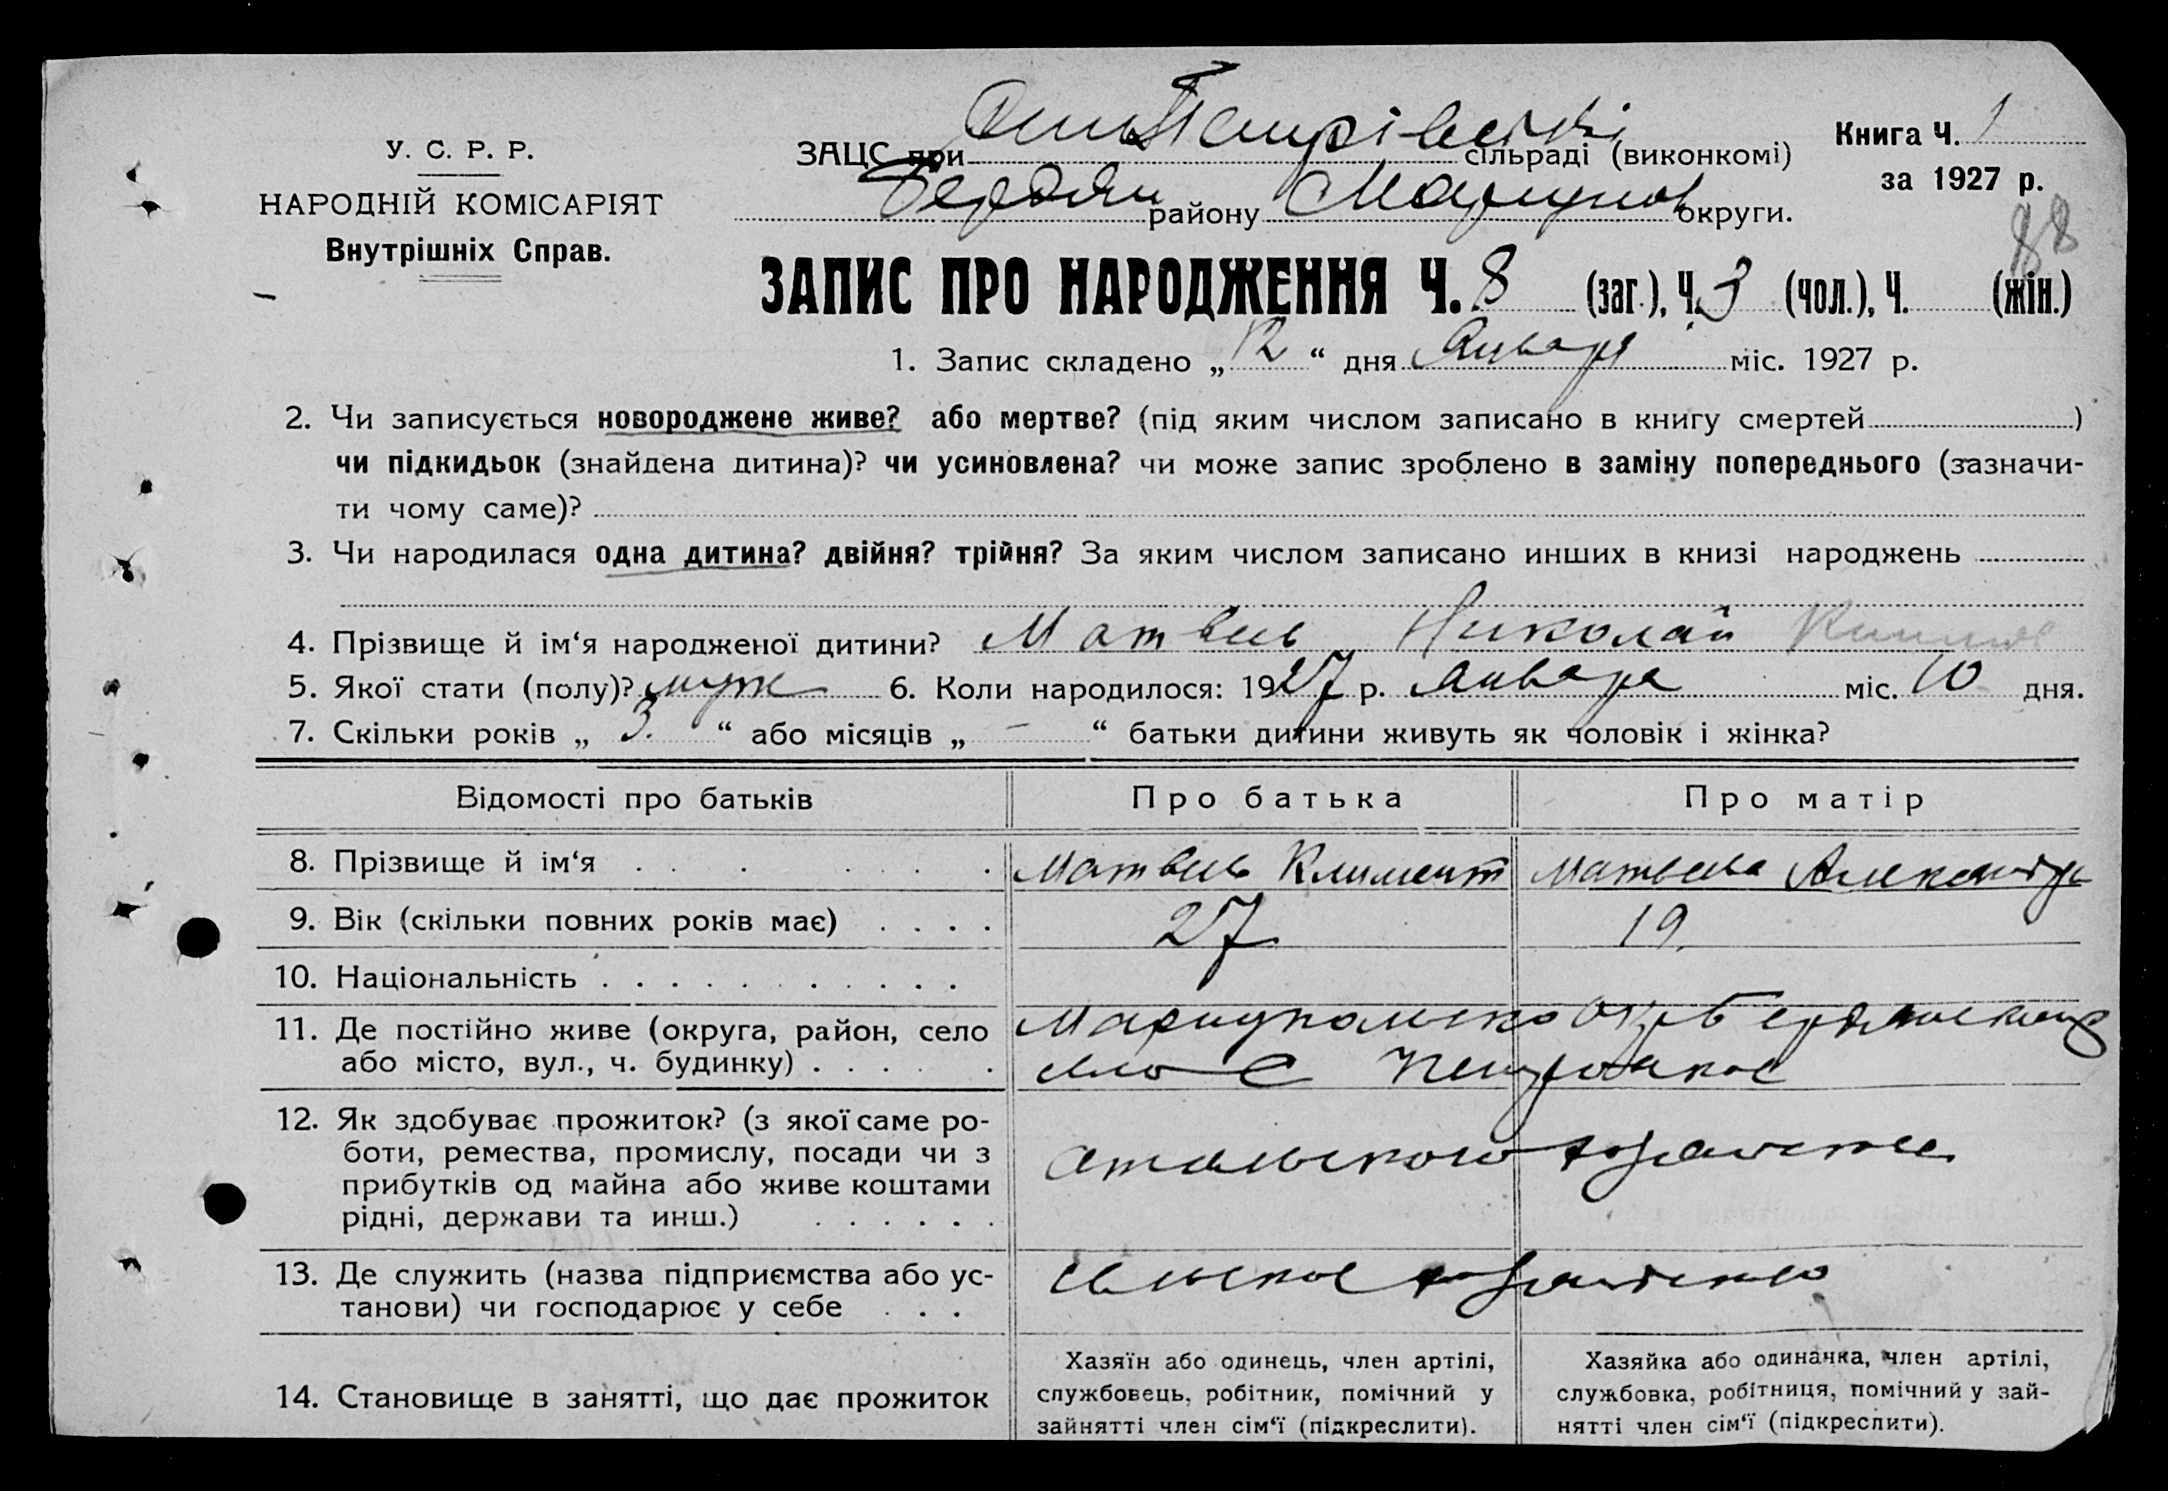 У. С. Р. Р.
НАРОДНІЙ КОМІСАРІЯТ
Внутрішніх Справ.
ЗАЦС при сільраді (виконкомі)
Бердян району Мариупов округи.
Книга Ч. 1
за 1927 р.
88
ЗАПИС ПРО НАРОДЖЕННЯ Ч. 8 (заг.), Ч. 3 (чол.), Ч. (жін.)
1. Запис складено „ 12 “ дня Января міс. 1927 р.
2. Чи записується новороджене живе? або мертве? (під яким числом записано в книгу смертей )
чи підкидьок (знайдена дитина)? чи усиновлена? чи може запис зроблено в заміну попереднього (зазначи-
ти чому саме)?
3. Чи народилася одна дитина? двійня? трійня? За яким числом записано инших в книзі народжень
4. Прізвище й ім‘я народженої дитини? Матвеев Николай
5. Якої стати (полу)? муж 6. Коли народилося: 1927 р. Января міс. 10 дня.
7. Скільки років „ 3. “ або місяців „ — “ батьки дитини живуть як чоловік і жінка?
Відомості про батьків Про батька Про матір
8. Прізвище й ім‘я . . . . . . Матвеев Климент Матвеева Александр
9. Вік (скільки повних років має) . . . . 27 19.
10. Національність . . . . . . . . . . .
11. Де постійно живе (округа, район, село
або місто, вул., ч. будинку) . . . . .
12. Як здобуває прожиток? (з якої саме ро-
боти, ремества, промислу, посади чи з
прибутків од майна або живе коштами
рідні, держави та инш.) . . . . . .
13. Де служить (назва підприємства або ус-
танови) чи господарює у себе . . .
14. Становище в занятті, що дає прожиток
Хазяїн або одинець, член артілі,
службовець, робітник, помічний у
зайнятті член сім‘ї (підкреслити).
Хазяйка або одиначка, член артілі,
службовка, робітниця, помічний у зай-
нятті член сім‘ї (підкреслити).